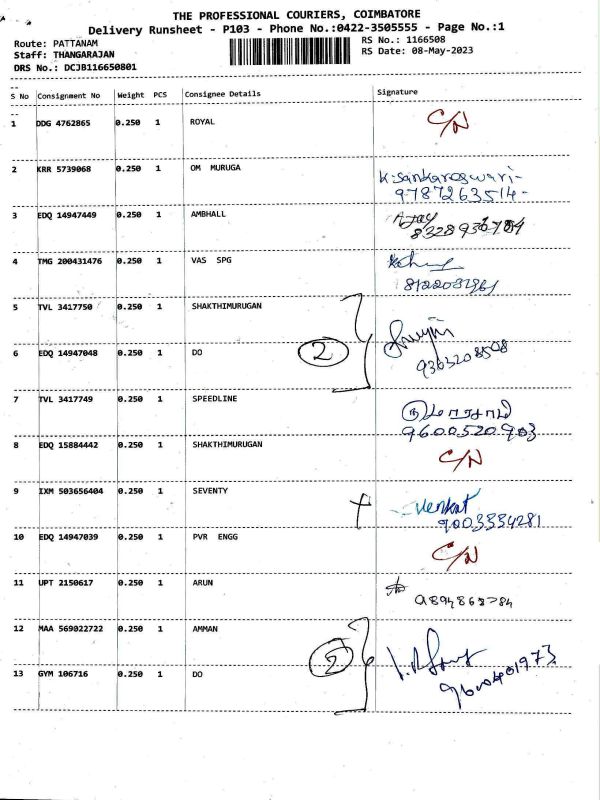 THE PROFESSIONAL COURIERS, COIMBATORE
Delivery Runsheet - P103 - Phone No.:0422-3505555 - Page No.:1
Route: PATTANAM
RS No.: 1166508
Staff: THANGARAJAN
RS Date: 08-May-2023
DRS No.: DCJB116650801
S No Consignment No Weight PCS Consignee Details Signature
1 DDG 4762865 0.250 1 ROYAL C/N
2 KRR 5739068 0.250 1 OM MURUGA K.Sankareswari-
9787263514-
3 EDQ 14947449 0.250 1 AMBHALL Ajay
4 TMG 200431476 0.250 1 VAS SPG
5 TVL 3417750 0.250 1 SHAKTHIMURUGAN
6 EDQ 14947048 0.250 1 DO 2
9363208508
7 TVL 3417749 0.250 1 SPEEDLINE
9600520903
8 EDQ 15884442 0.250 1 SHAKTHIMURUGAN C/N
9 IXM 503656404 0.250 1 SEVENTY Venkat
9003334281
10 EDQ 14947039 0.250 1 PVR ENGG C/N
11 UPT 2150617 0.250 1 ARUN
12 MAA 569022722 0.250 1 AMMAN 2
13 GYM 106716 0.250 1 DO
9600401973